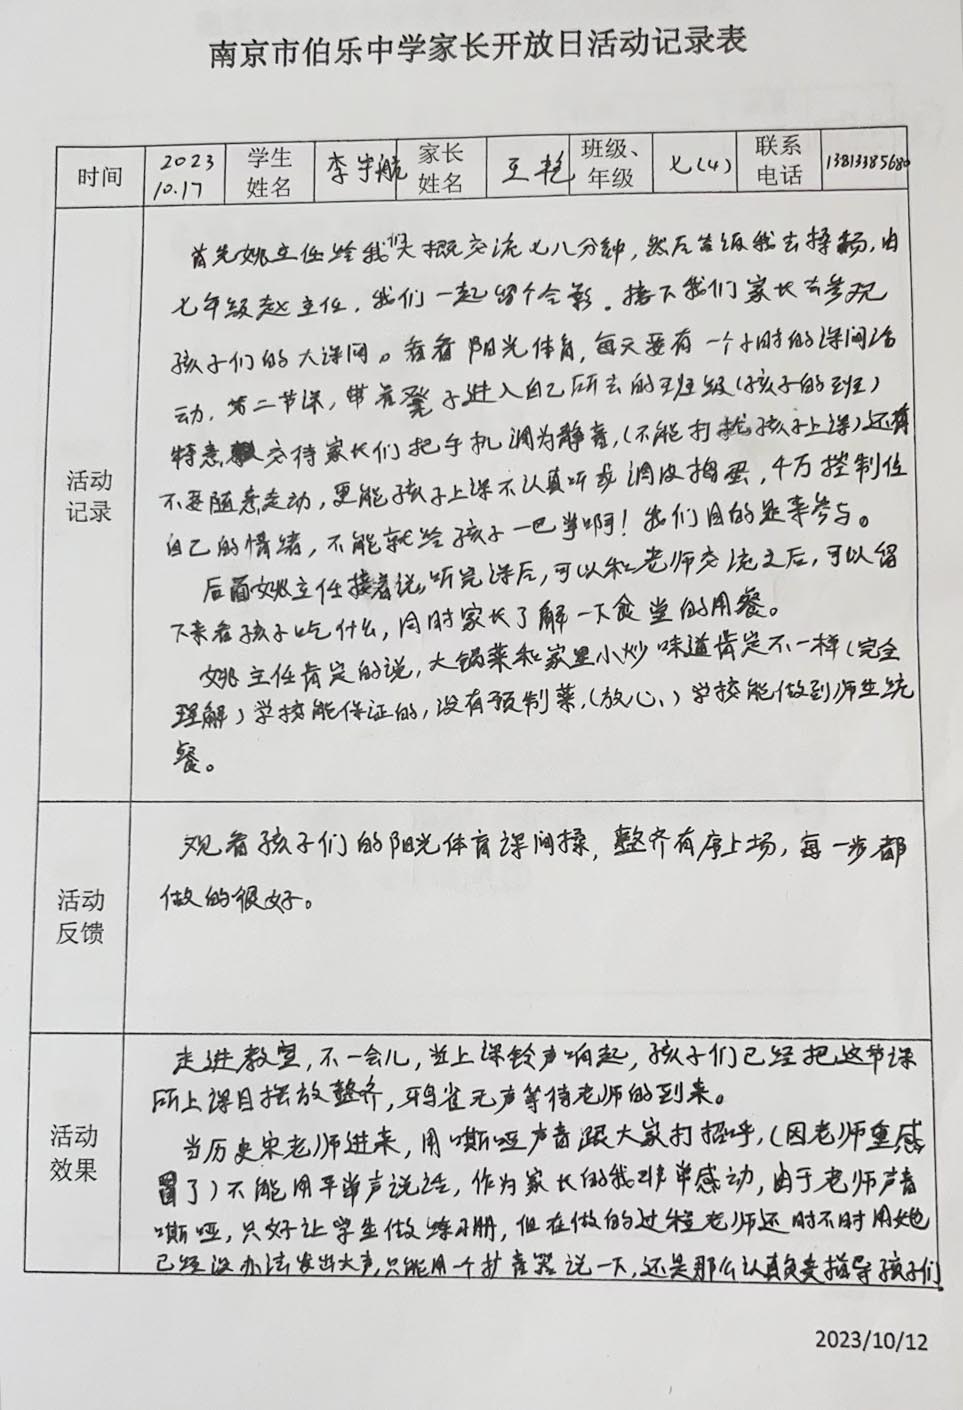 南京市伯乐中学家长开放日活动记录表
时间 2023 10.17 学生姓名 李宇航 家长姓名 王艳 班级、年级 七(4) 联系电话 13813385680
活动记录
首先姚主任给我们大概交流七八分钟，然后带领我去操场，由
七年级赵主任，我们一起留个合影。接下我们家长去参观
孩子们的大课间。看看阳光体育，每天要有一个小时的课间活
动，第二节课，带着凳子进入自己所去的班级(孩子的班)
特意交待家长们把手机调为静音，(不能打扰孩子上课)还有
不要随意走动，更能孩子上课不认真听或调皮捣蛋，千万控制住
自己的情绪，不能就给孩子一巴掌啊！我们目的是来参与。
后面姚主任接着说，听完课后，可以和老师交流之后，可以留
下来看孩子吃什么，同时家长了解一下食堂的用餐。
姚主任肯定的说，大锅菜和家里小炒味道肯定不一样(完全
理解)学校能保证的，没有预制菜，(放心、)学校能做到师生统
餐。
活动反馈
观看孩子们的阳光体育课间操，整齐有序上场，每一步都
做的很好。
活动效果
走进教室，不一会儿，当上课铃声响起，孩子们已经把这节课
所上课目摆放整齐，鸦雀无声等待老师的到来。
当历史宋老师进来，用嘶哑声音跟大家打招呼，(因老师重感
冒了)不能用平常声说话，作为家长的我非常感动，由于老师声音
嘶哑，只好让学生做练习册，但在做的过程老师还时不时用她
已经没办法发出大声，只能用个扩音器说一下，还是那么认真负责指导孩子们
2023/10/12